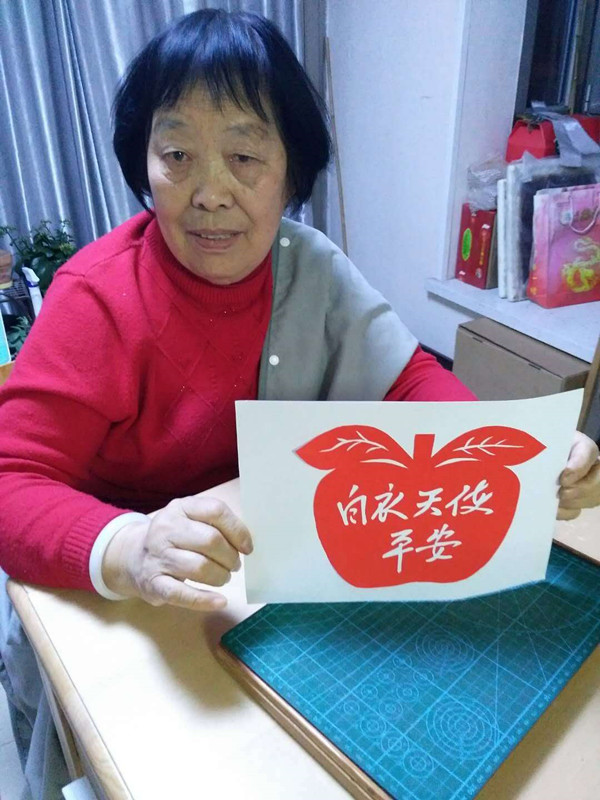 白衣天使
平安